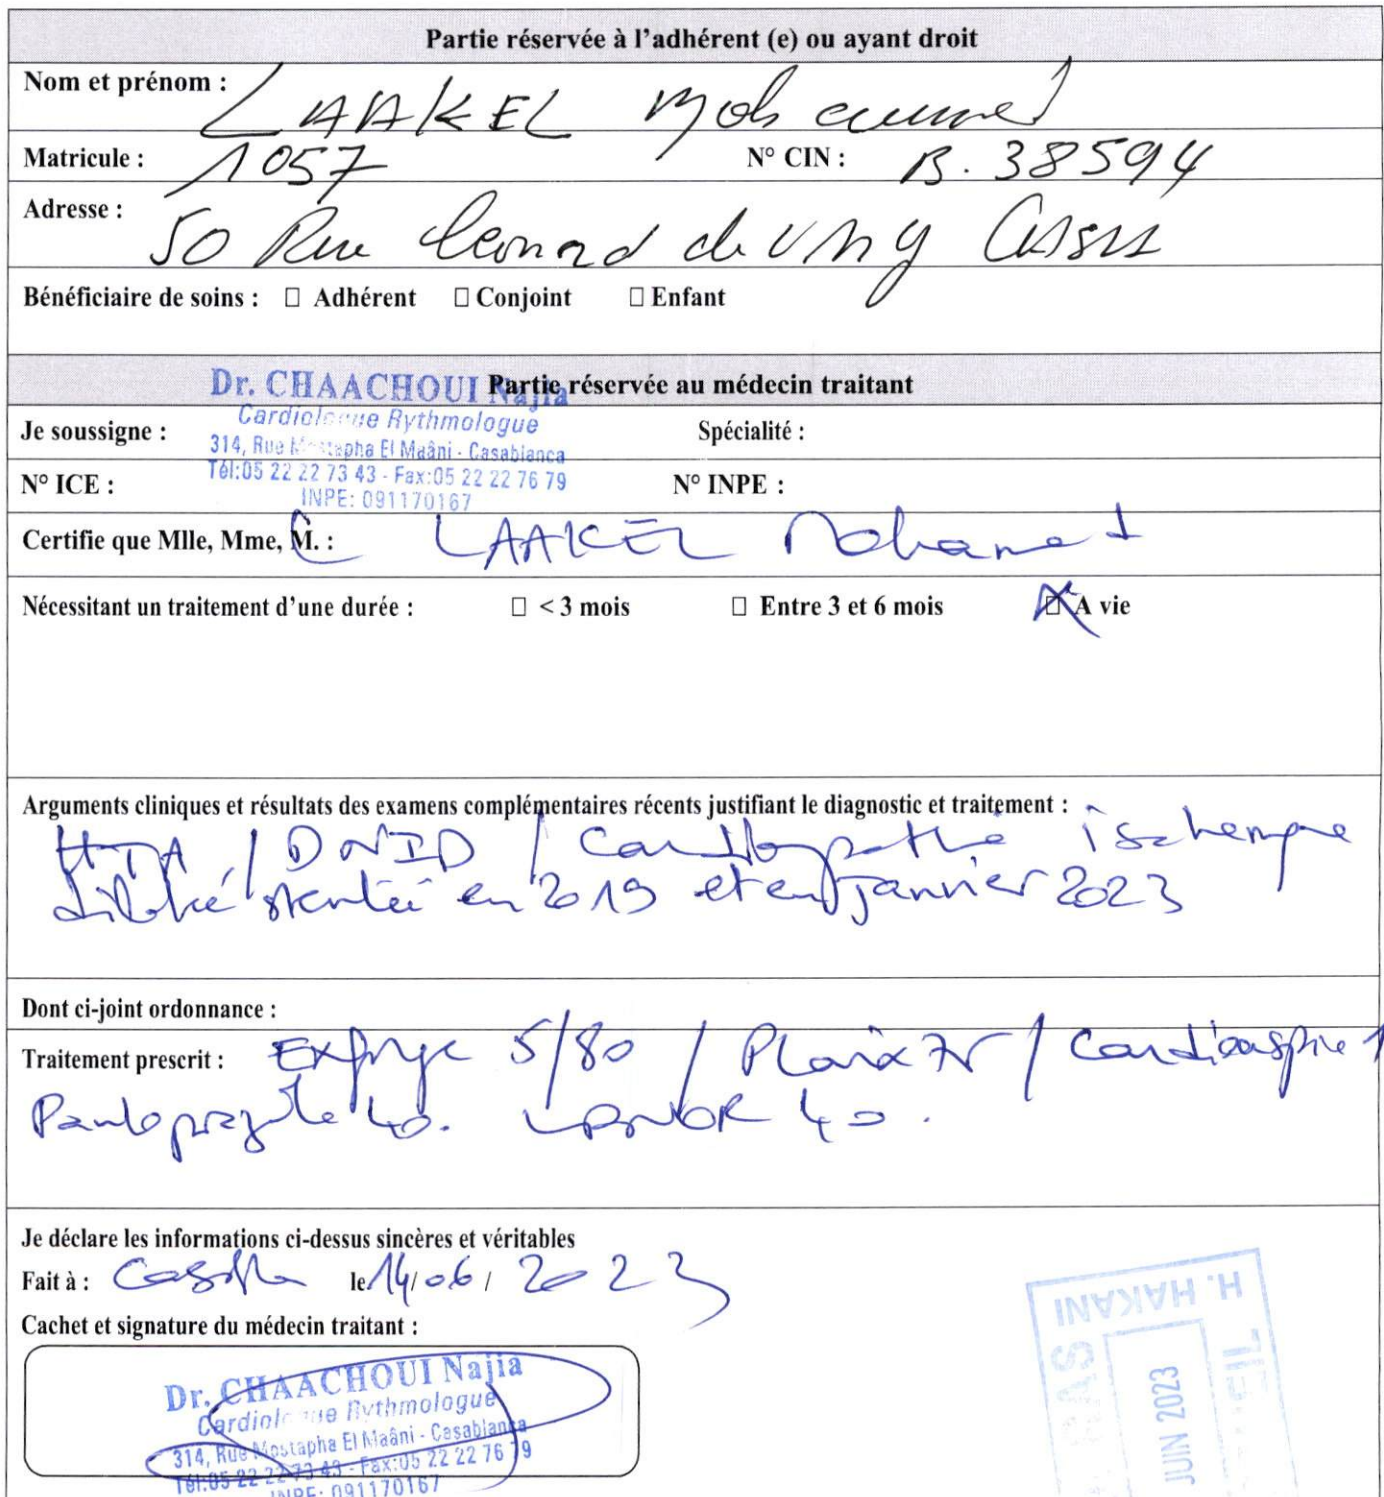 Partie réservée à l'adhérent (e) ou ayant droit
Nom et prénom : LAAKEL Mohammed
Matricule : 1057 N° CIN : B. 38594
Adresse : 50 Rue Leonard de Casa
Bénéficiaire de soins : □ Adhérent □ Conjoint □ Enfant
Partie réservée au médecin traitant
Dr. CHAACHOUI Najia
Cardiologue Rythmologue
314, Rue Mostapha El Maâni - Casablanca
Tél:05 22 22 73 43 - Fax:05 22 22 76 79
INPE: 091170167
Je soussigne : Spécialité :
N° ICE : N° INPE :
Certifie que Mlle, Mme, M. : LAAKEL Mohamed
Nécessitant un traitement d'une durée : □ < 3 mois □ Entre 3 et 6 mois ☒ A vie
Arguments cliniques et résultats des examens complémentaires récents justifiant le diagnostic et traitement :
HTA / DNID / Cardiopathie ischemique
stentée en 2019 et en janvier 2023
Dont ci-joint ordonnance :
Traitement prescrit : Exforge 5/80 / Plavix 75 / Cardioaspirine
Pantoprazole 40. 40.
Je déclare les informations ci-dessus sincères et véritables
Fait à : Casa le 14/06/2023
Cachet et signature du médecin traitant :
Dr. CHAACHOUI Najia
Cardiologue Rythmologue
314, Rue Mostapha El Maâni - Casablanca
Tél:05 22 22 73 43 - Fax:05 22 22 76 79
INPE: 091170167
H. HAKANI
JUIN 2023